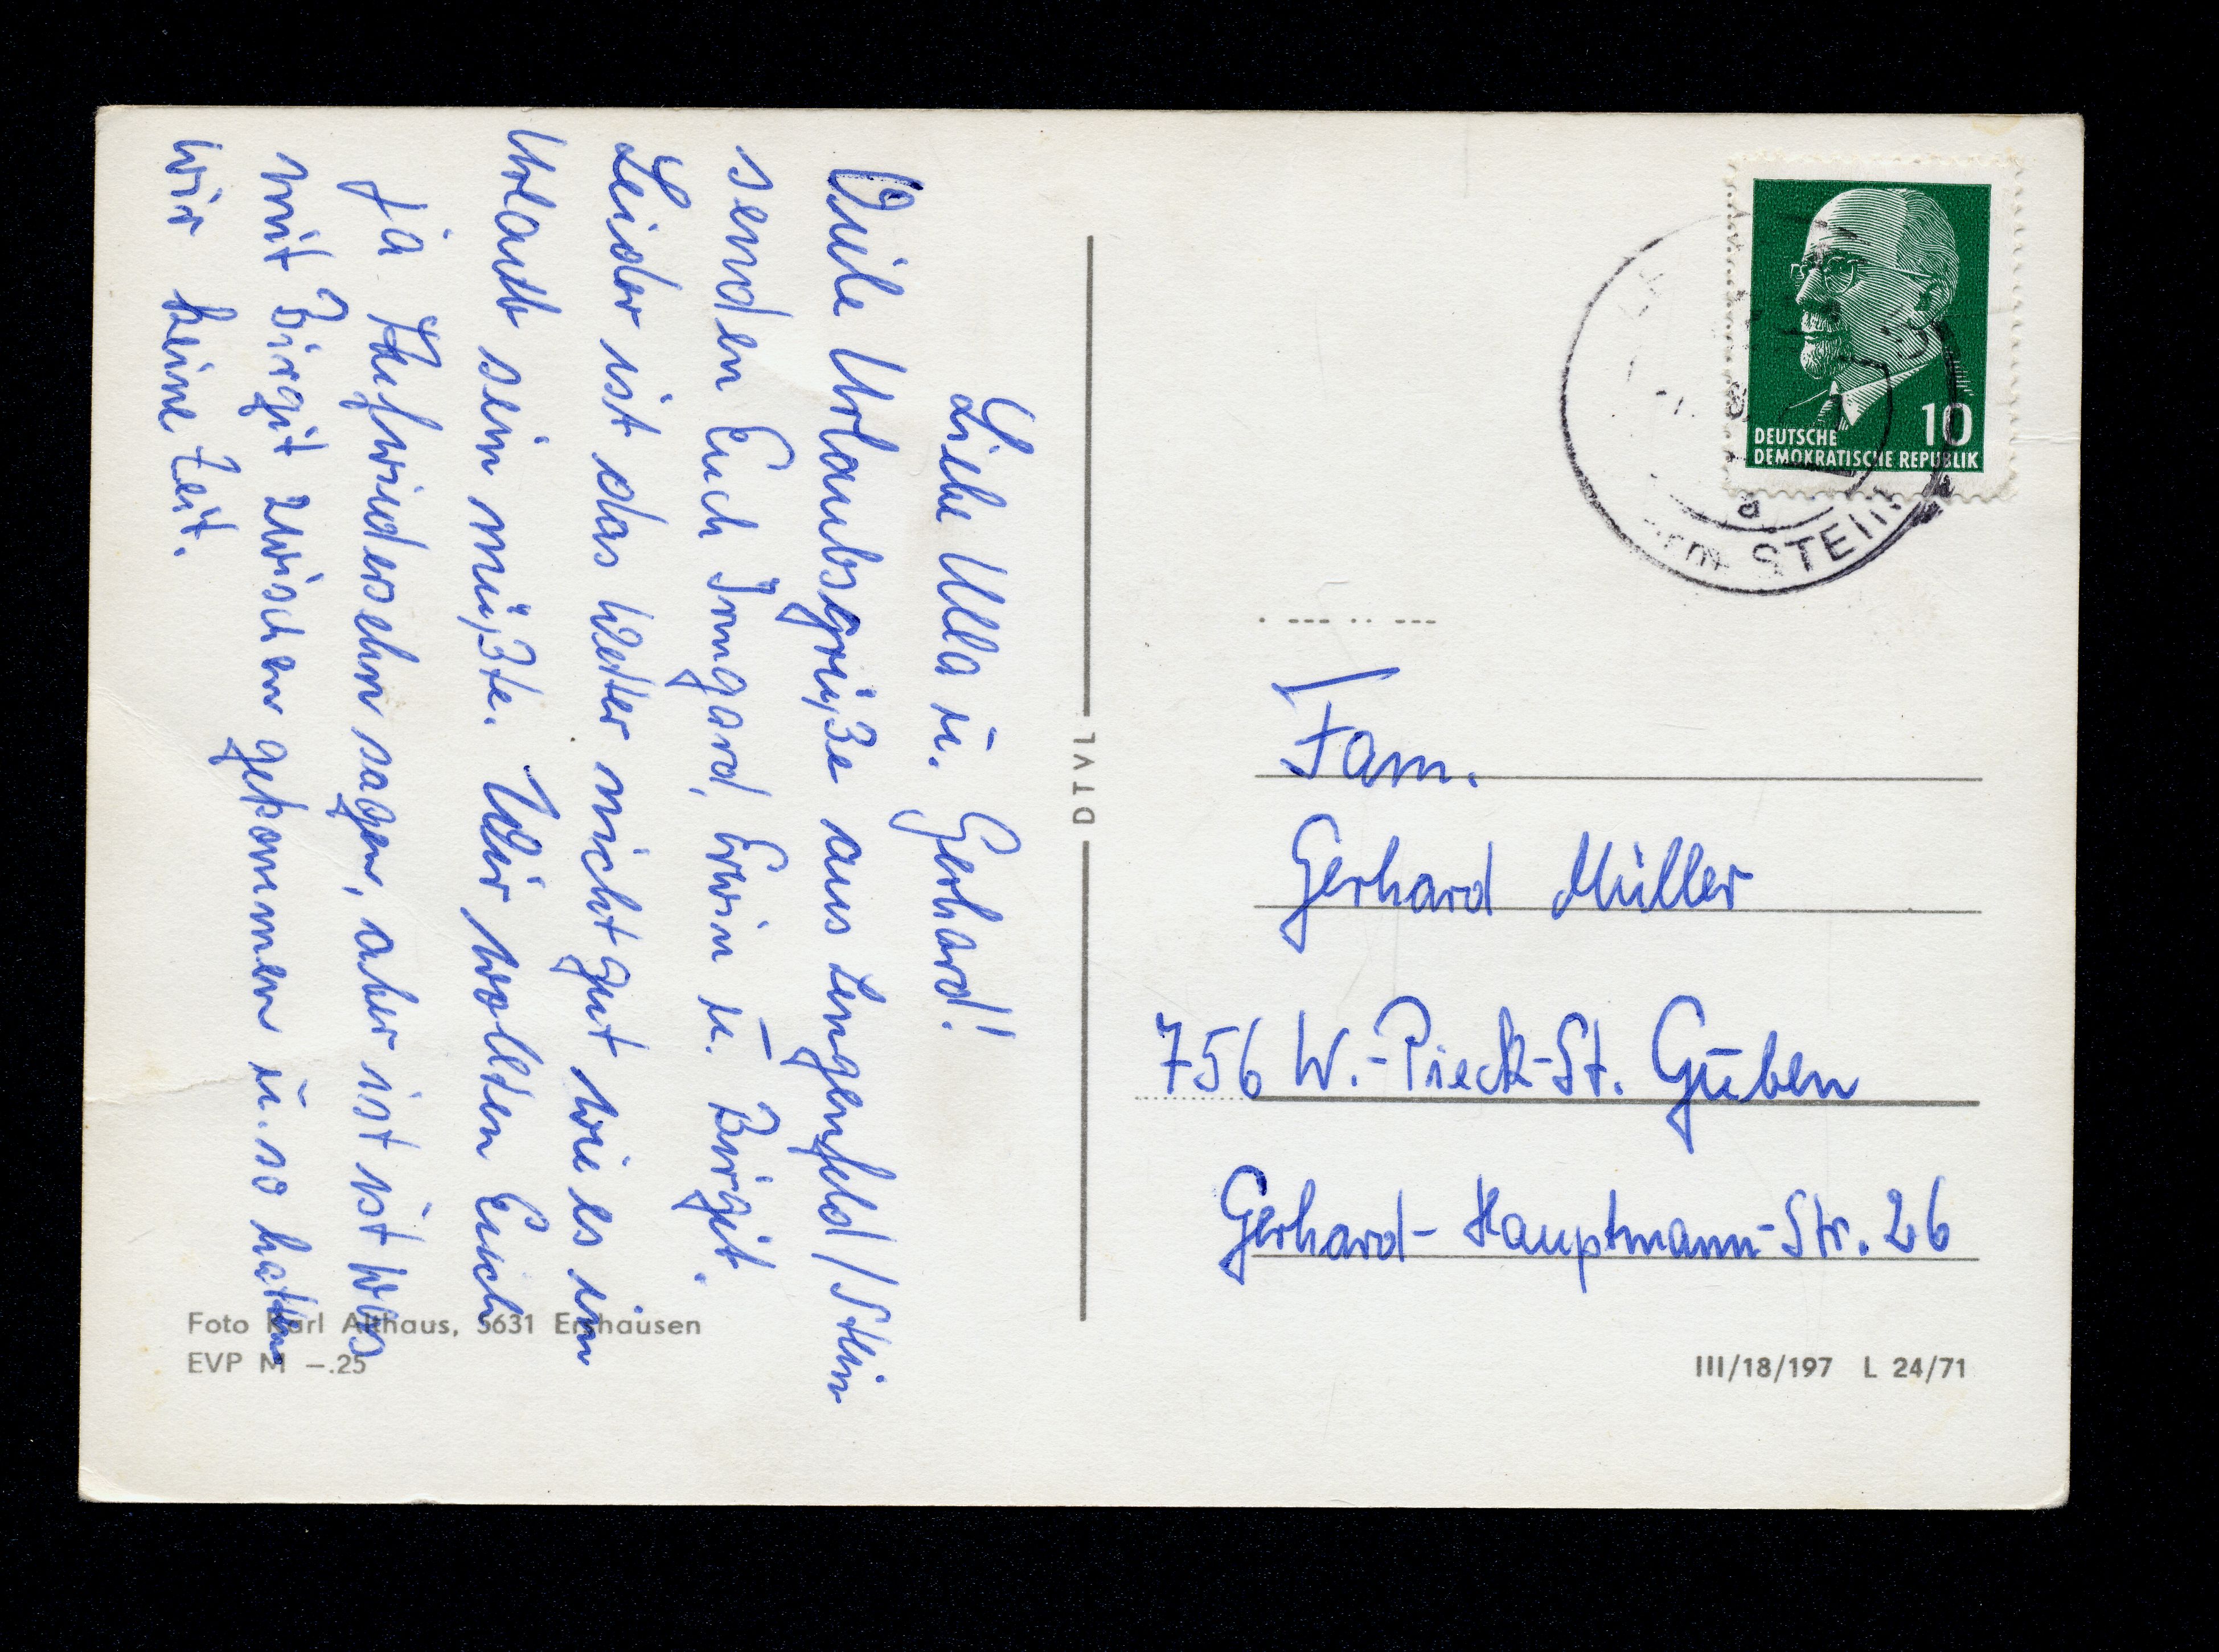 Liebe Ulla u. Gerhard!
Viele Urlaubsgrüße aus Lengenfeld/Stein
senden Euch Irmgard, Erwin u. Birgit.
Leider ist das Wetter nicht gut wie es im
Urlaub sein müßte. Wir wollten Euch
ja Aufwiedersehn sagen, aber ist ist was
mit Birgit zwischen gekommen u. so hatten
wir keine Zeit.
Foto Karl Althaus, 5631 Ershausen
EVP M –.25
DTVL
DEUTSCHE
DEMOKRATISCHE REPUBLIK
10
a
STEIN
Fam.
Gerhard Müller
756 W.-Pieck-St. Guben
Gerhard-Hauptmann-Str. 26
III/18/197 L 24/71